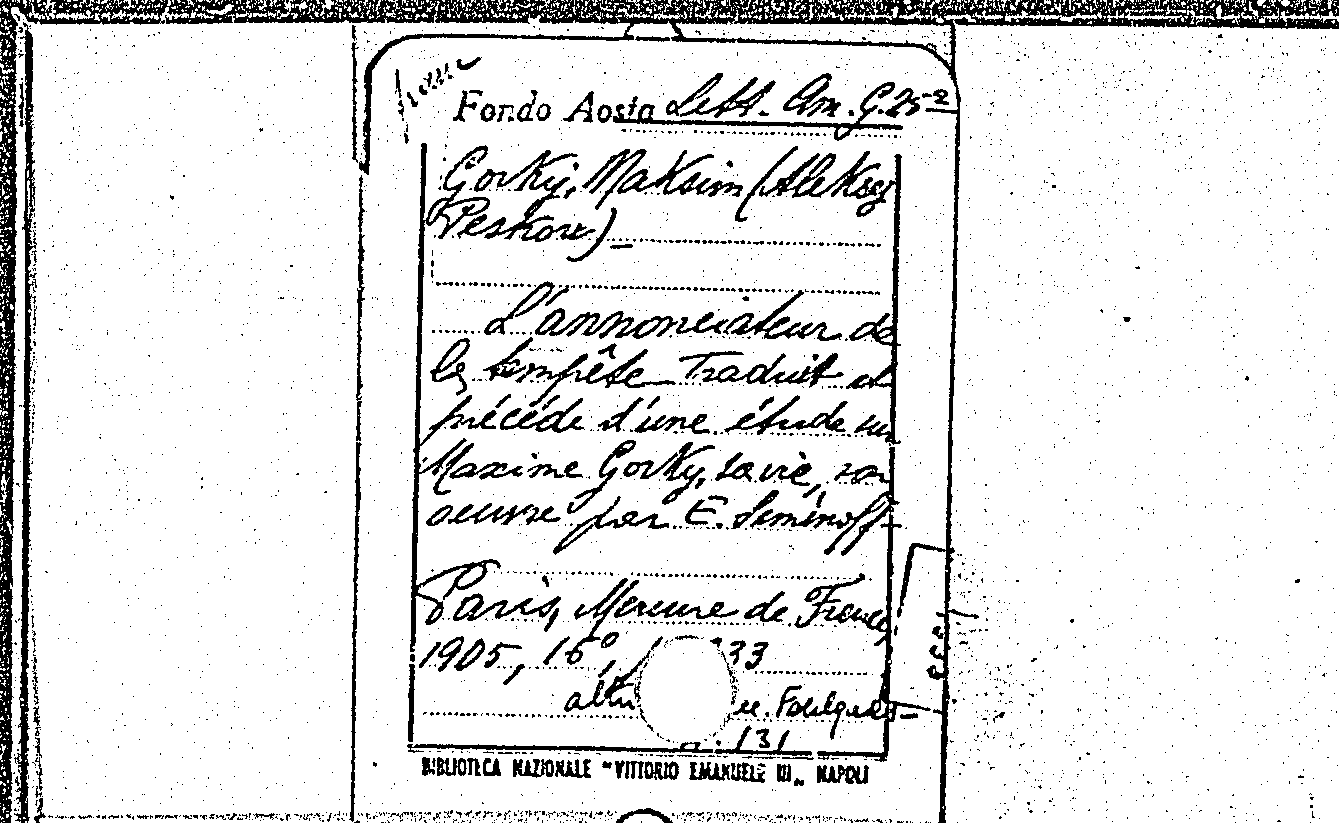 Fondo Aosta Lett. Am. G. 25-2
Gorkij, Maksim (Aleksej
Peskow)_
L'annonciateur de
la tempête Traduit et
précédé d'une étude sur
Maxime Gorky, sa vie, son
oeuvre par E. Séménoff-
Paris, Mercure de France,
1905, 16°, 33
131
BIBLIOTECA NAZIONALE "VITTORIO EMANUELE III" NAPOLI